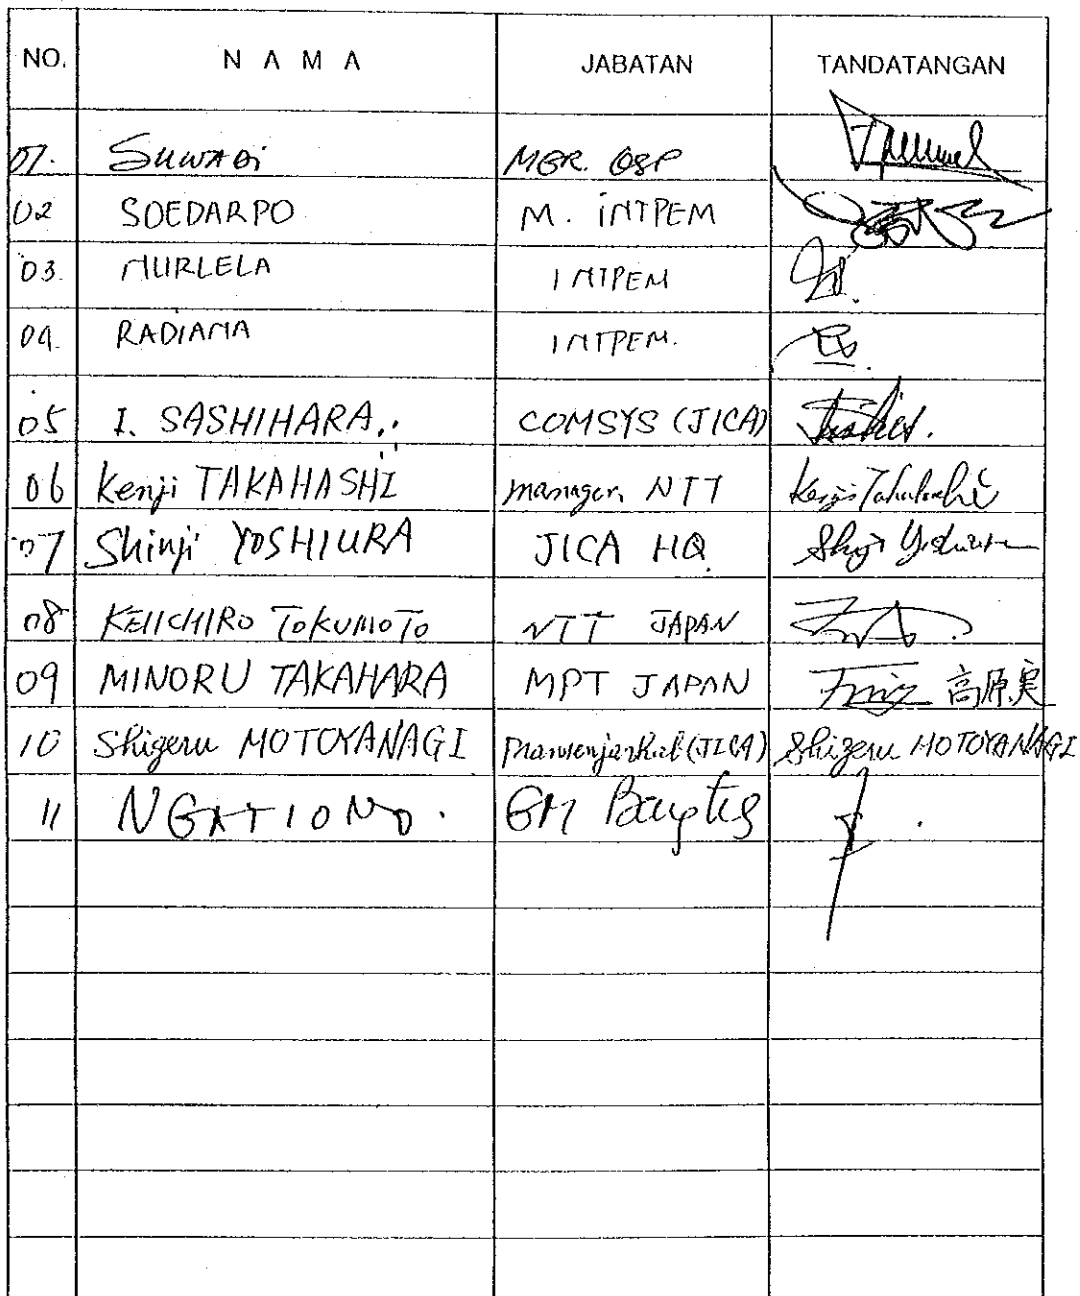 NO. N A M A JABATAN TANDATANGAN
01. SUWADI MGR. OSP
02 SOEDARPO M. INTPEM
03. NURLELA INTPEM
04. RADIANA INTPEM.
05 I. SASHIHARA. COMSYS (JICA)
06 Kenji TAKAHASHI manager, NTT Kenji Takahashi
07 Shinji YOSHIURA JICA HQ Shinji Yoshiura
08 KEIICHIRO TOKUMOTO NTT JAPAN
09 MINORU TAKAHARA MPT JAPAN 高原実
10 Shigeru MOTOYANAGI (JICA) Shigeru MOTOYANAGI
11 NGATIONO. GM